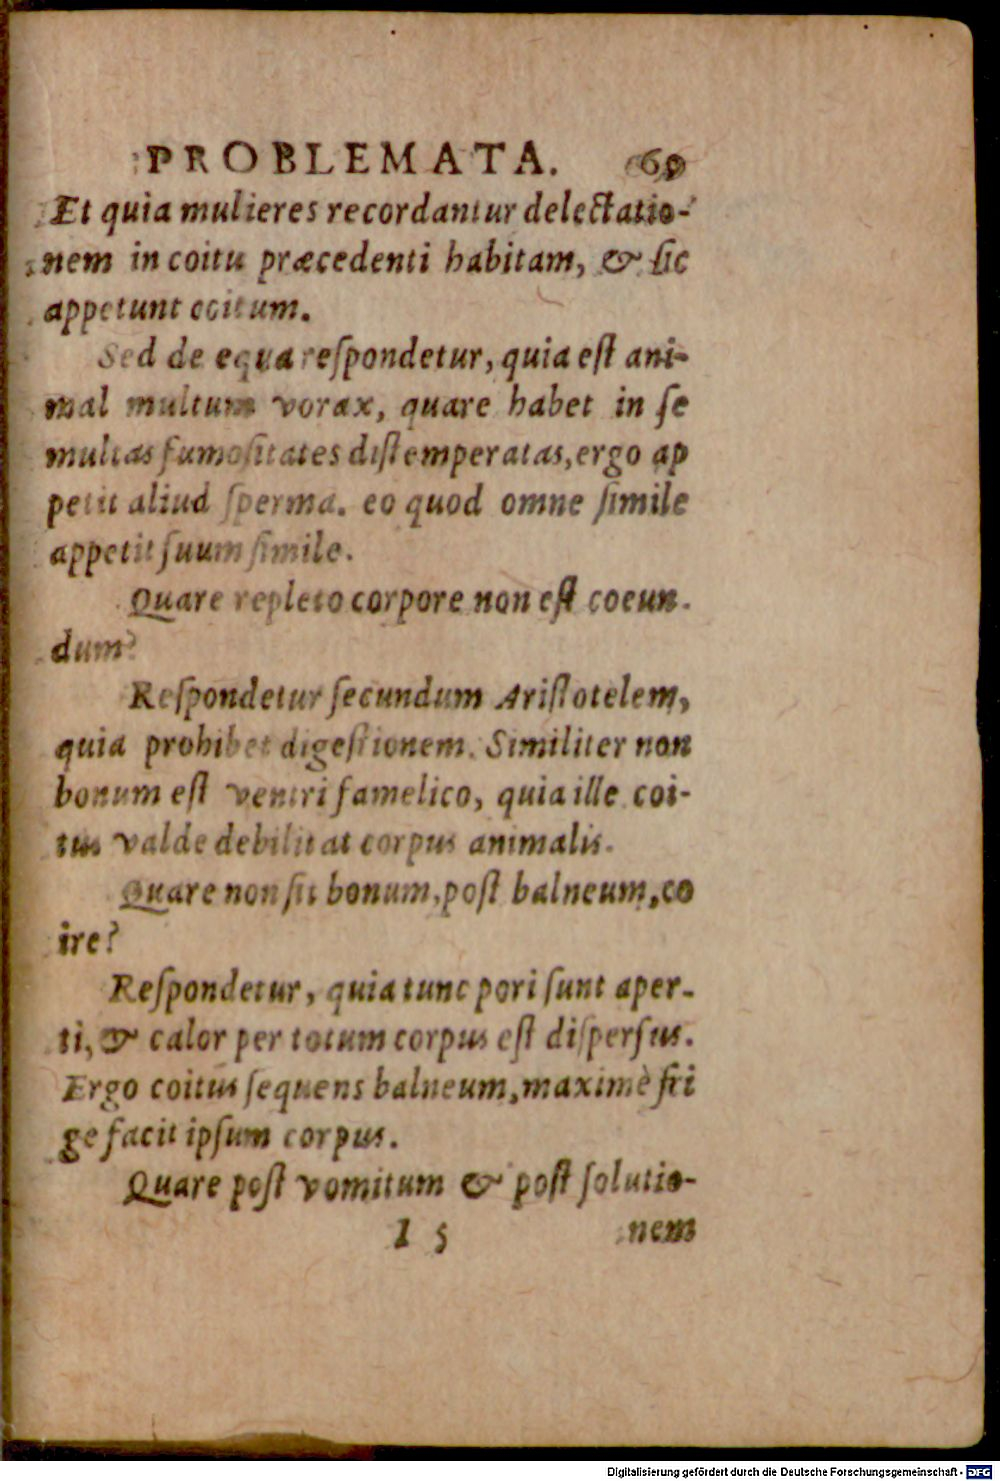 PROBLEMATA. 69
Et quia mulieres recordantur delectatio-
nem in coitu præcedenti habitam, & ſic
appetunt coitum.
Sed de equa reſpondetur, quia eſt ani-
mal multum vorax, quare habet in ſe
multas fumoſitates diſtemperatas, ergo ap
petit aliud ſperma. eo quod omne ſimile
appetit ſuum ſimile.
Quare repleto corpore non eſt coeun-
dum?
Reſpondetur ſecundum Ariſtotelem,
quia prohibet digeſtionem. Similiter non
bonum eſt ventri famelico, quia ille coi-
tus valde debilitat corpus animalis.
Quare non ſit bonum, poſt balneum, co
ire?
Reſpondetur, quia tunc pori ſunt aper-
ti, & calor per totum corpus eſt diſperſus.
Ergo coitus ſequens balneum, maximè fri
gefacit ipſum corpus.
Quare poſt vomitum & poſt ſolutio-
I 5 nem
Digitalisierung gefördert durch die Deutsche Forschungsgemeinschaft - DFG